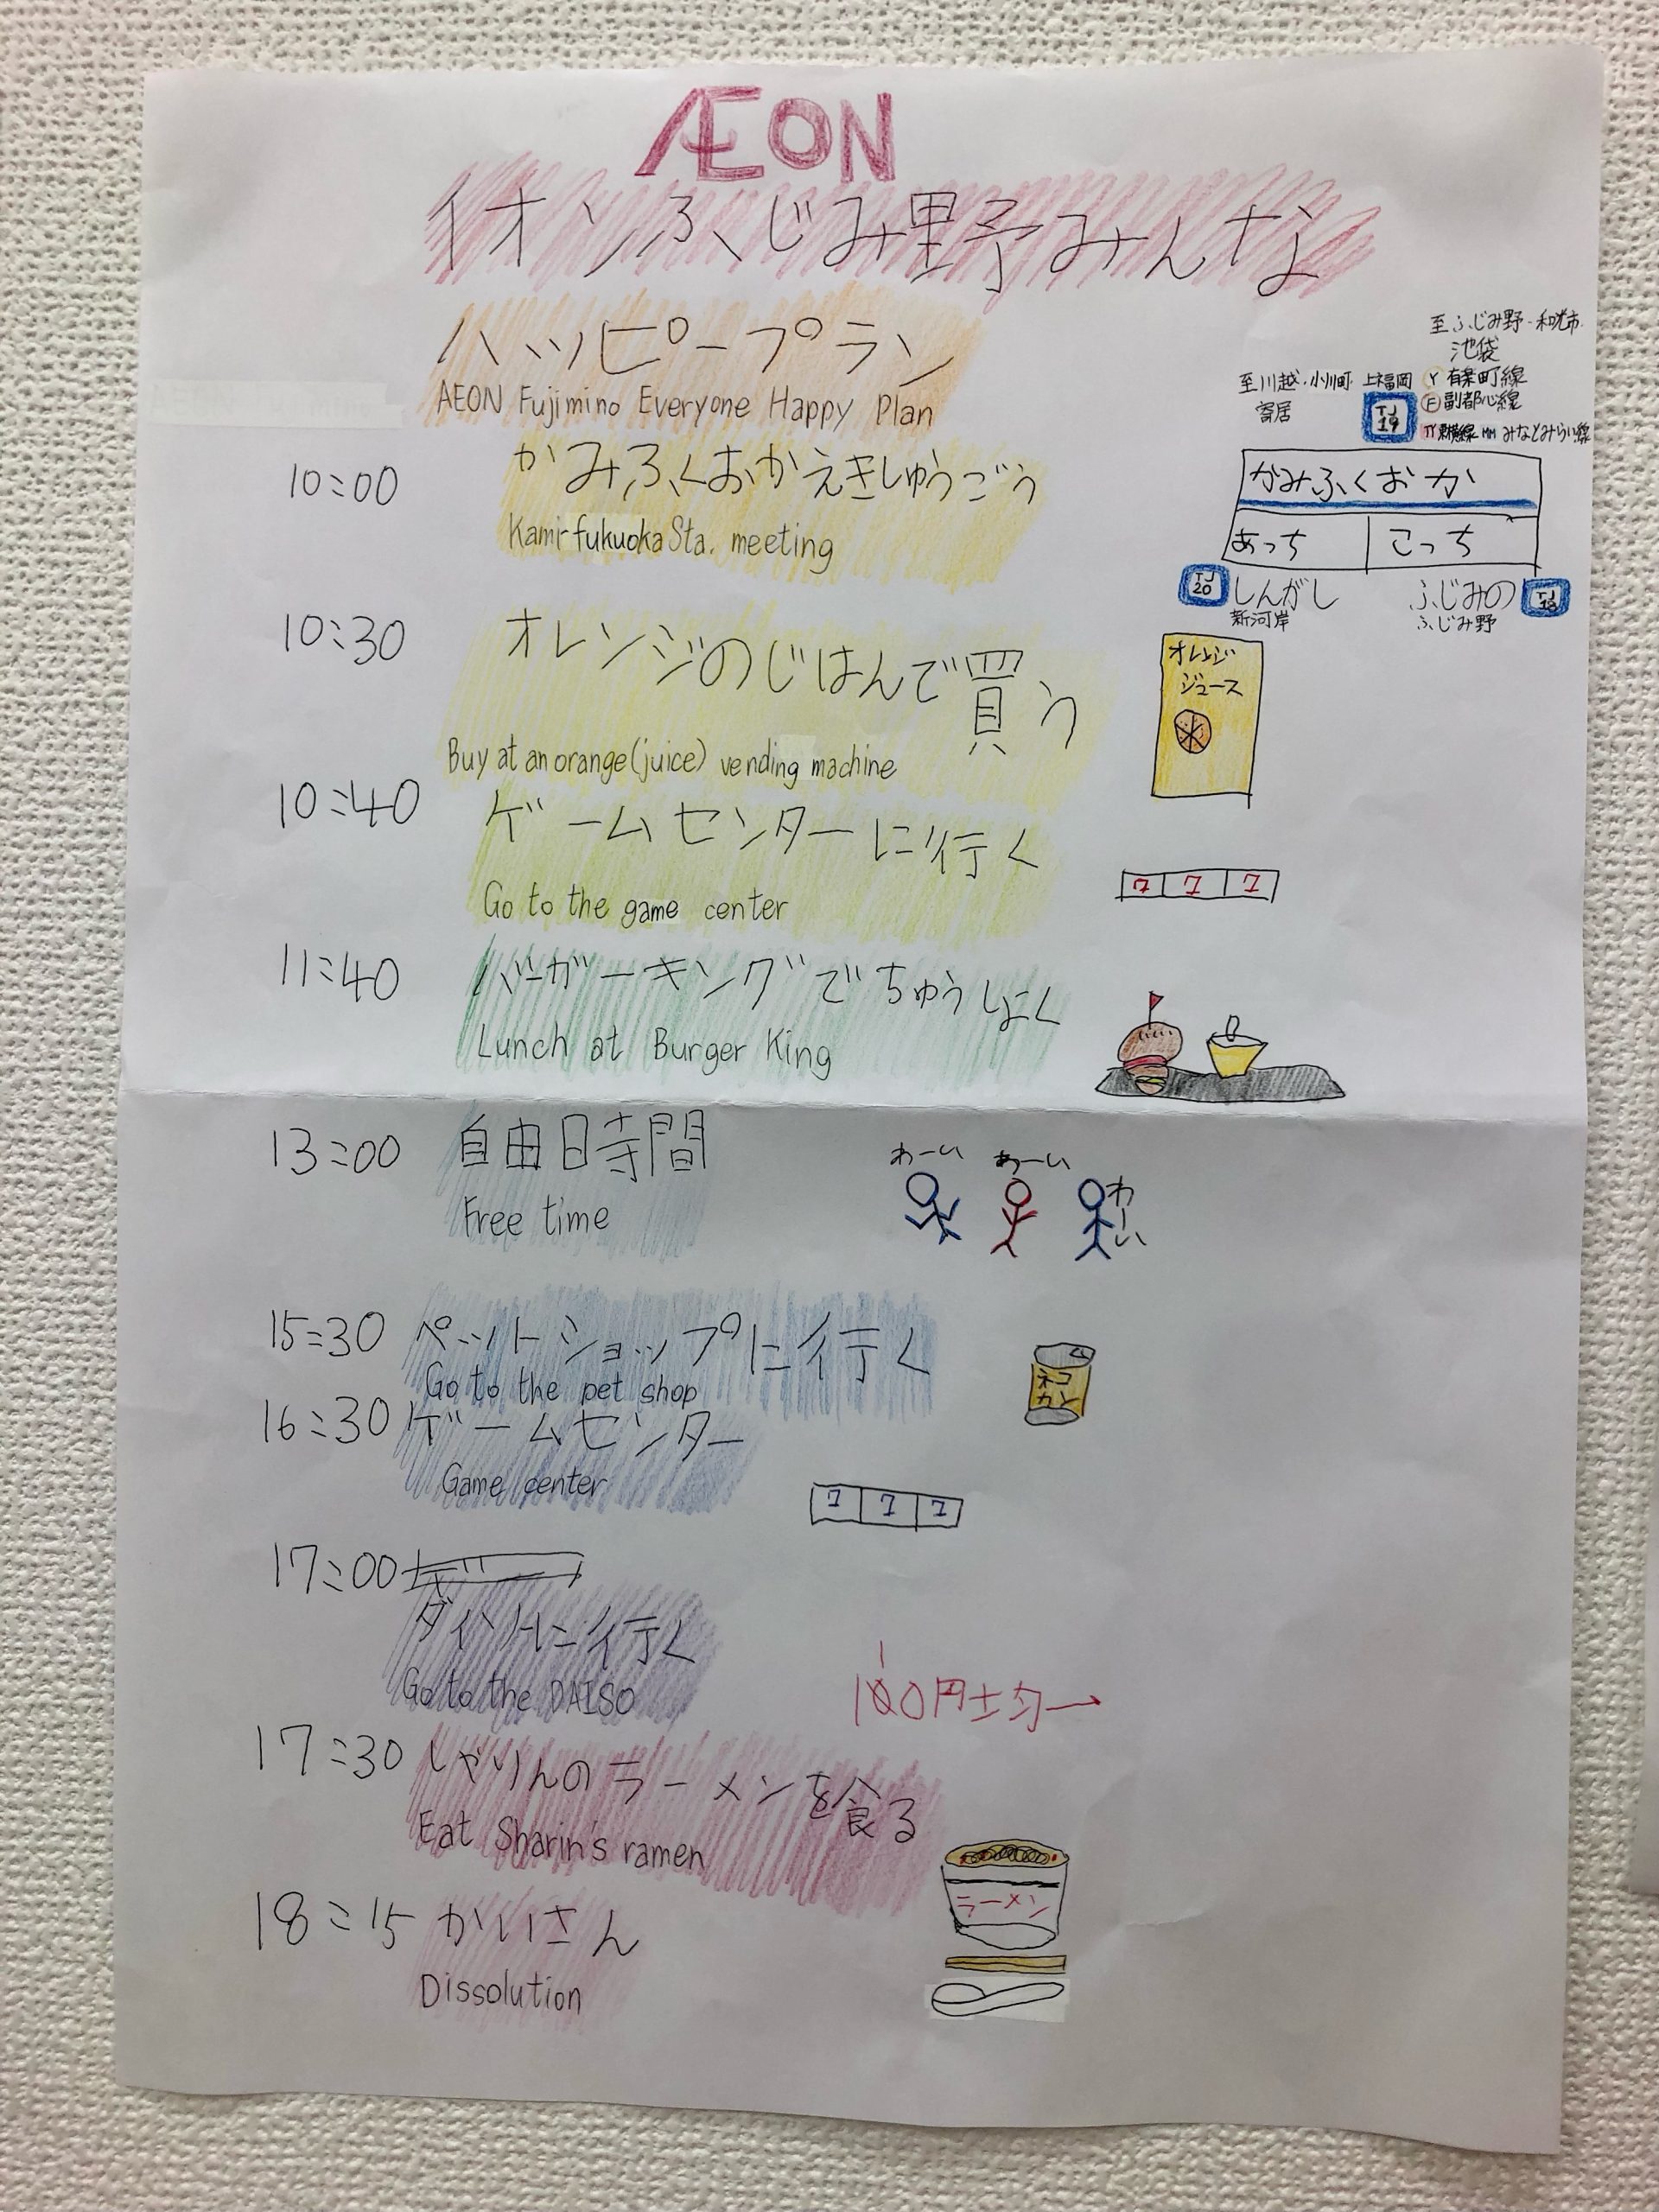 ÆON
イオンふじみ野みんな
ハッピープラン
AEON Fujimino Everyone Happy Plan
至ふじみ野・和光市
池袋
至川越・小川町
寄居
上福岡
TJ
19
Y 有楽町線
F 副都心線
TY 東横線 MM みなとみらい線
かみふくおか
あっち
こっち
TJ
20
しんがし
新河岸
ふじみの
ふじみ野
TJ
18
10:00
かみふくおかえきしゅうごう
Kami-fukuoka Sta. meeting
10:30
オレンジのじはんで買う
Buy at an orange(juice) vending machine
オレンジ
ジュース
10:40
ゲームセンターに行く
Go to the game center
7 7 7
11:40
バーガーキングでちゅうしょく
Lunch at Burger King
13:00
自由時間
Free time
わーい
わーい
わーい
15:30
ペットショップに行く
Go to the pet shop
ネコ
カン
16:30
ゲームセンター
Game center
7 7 7
17:00
ダイソーに行く
Go to the DAISO
100円士匀ー
17:30
しゃりんのラーメンを食る
Eat Sharin's ramen
ラーメン
18:15
かいさん
Dissolution